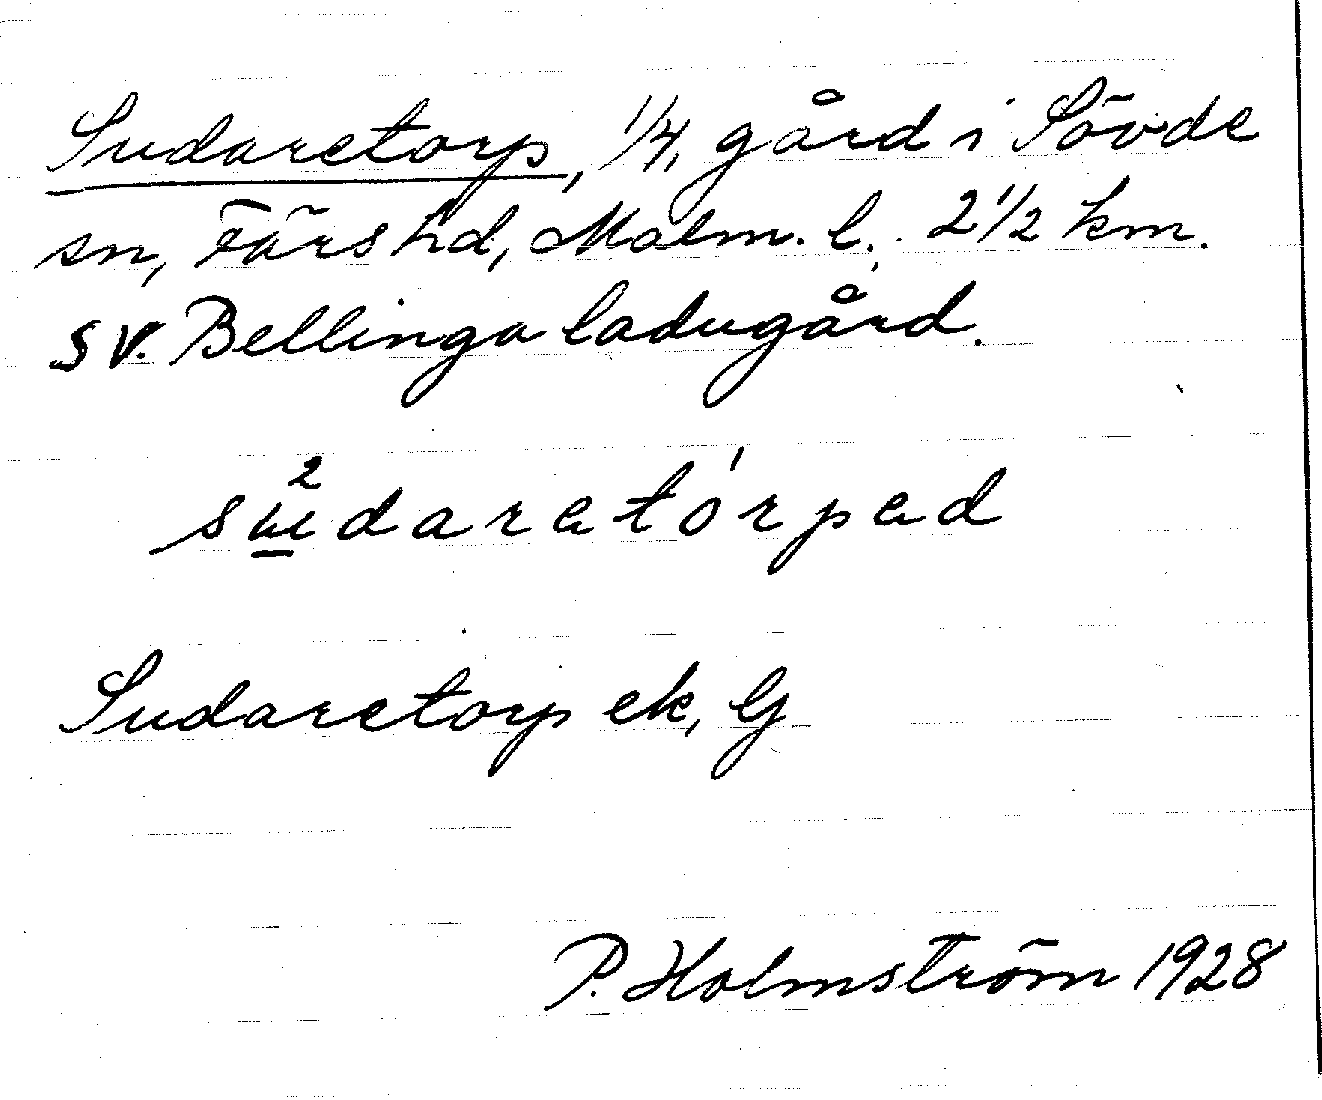 Sudaretorp, 1/4, gård i Sövde
sn, Färs hd, Malm. l. 2 1/2 km.
SV. Bellinga ladugård.
sudaratórpad
Sudaretorp ek, Gj
P. Holmström 1928